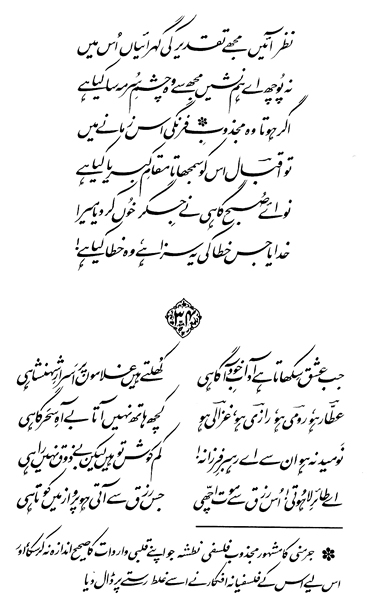 نظر آئیں مجھے تقدیر کی گہرائیاں اُس میں
نہ پُوچھ اے ہم نشیں مجھ سے وہ چشمِ سُرمہ سا کیا ہے
اگر ہوتا وہ مجذوبِ* فرنگی اس زمانے میں
تو اقبالؔ اس کو سمجھاتا مقامِ کبریا کیا ہے
نوائے صُبح گاہی نے جگر خُوں کر دیا میرا
خدایا جس خطا کی یہ سزا ہے وہ خطا کیا ہے!
۳۴
جب عشق سِکھاتا ہے آدابِ خود آگاہی کھُلتے ہیں غلاموں پر اَسرارِ شہنشاہی
عطّارؔ ہو، رومیؔ ہو، رازیؔ ہو، غزالیؔ ہو کچھ ہاتھ نہیں آتا بے آہِ سحَرگاہی
نَومید نہ ہو ان سے اے رہبرِ فرزانہ! کم کوش تو ہیں لیکن بے ذوق نہیں راہی
اے طائرِ لاہُوتی! اُس رزق سے موت اچھّی جس رزق سے آتی ہو پرواز میں کوتاہی
* جرمنی کا مشہور مجذوب فلسفی نطشہ جو اپنے قلبی واردات کا صحیح اندازہ نہ کر سکا اور
اس لیے اس کے فلسفیانہ افکار نے اسے غلط رستے پر ڈال دیا